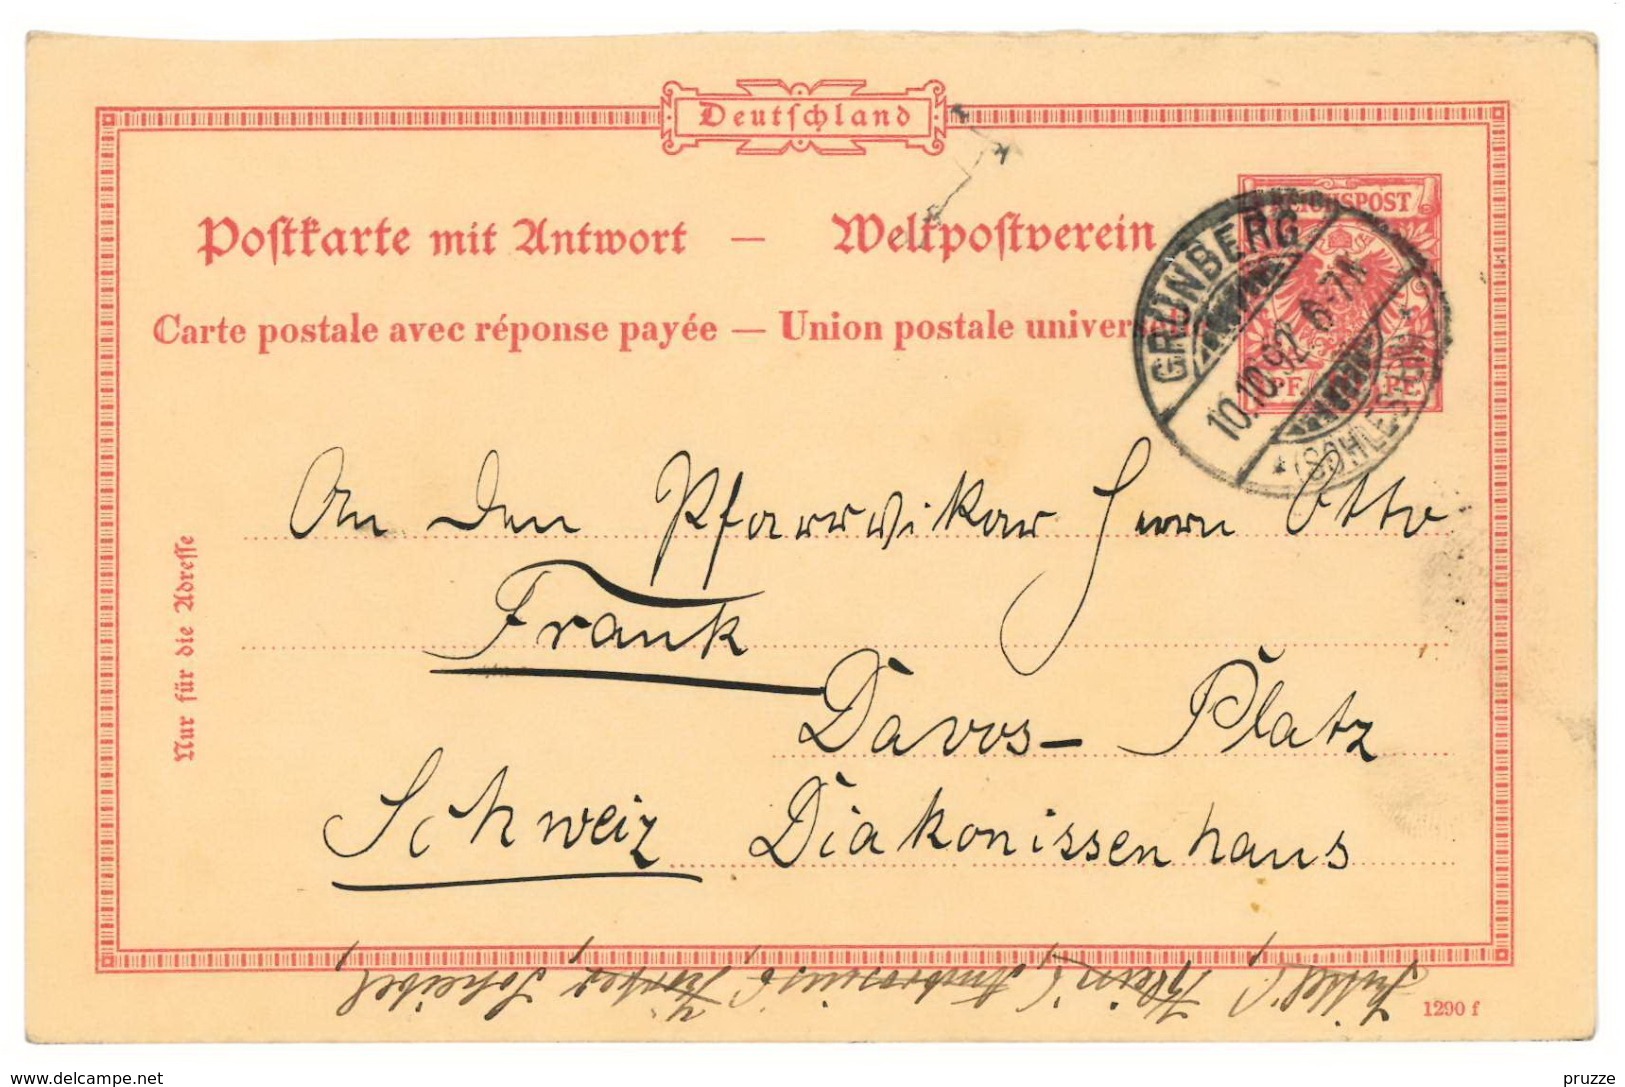 Deutschland
Postkarte mit Antwort — Weltpostverein
Carte postale avec réponse payée — Union postale univer
REICHSPOST
GRÜNBERG
10.10.92. 6-7N
*(SCHLESIEN)*
Nur für die Adresse
An den Pfarrvikar Herrn Otto
Frank
Davos- Platz
Schweiz Diakonissenhaus
Klein, Ambrosius, Scheibel
1290 f
www.delcampe.net
pruzze